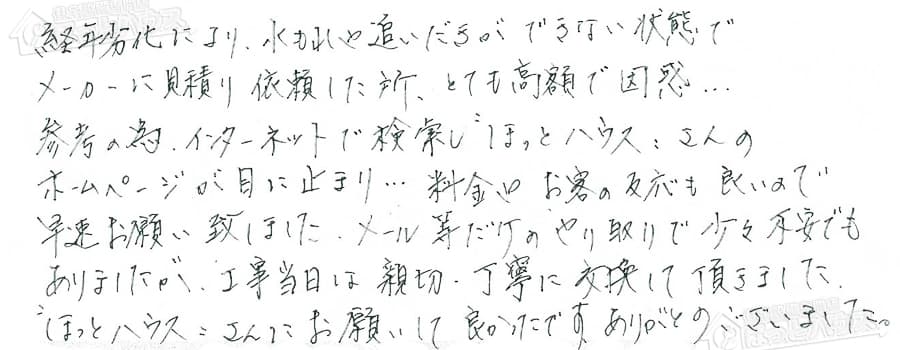 経年劣化により、水もれや追いだきができない状態で
メーカーに見積り依頼した所、とても高額で困惑…
参考の為、インターネットで検索し〝ほっとハウス〟さんの
ホームページが目に止まり… 料金や お客の反応も良いので
早速お願い致しました。メール等だけのやり取りで少々不安でも
ありましたが、工事当日は親切・丁寧に交換して頂きました。
〝ほっとハウス〟さんにお願いして良かったです。ありがとうございました。